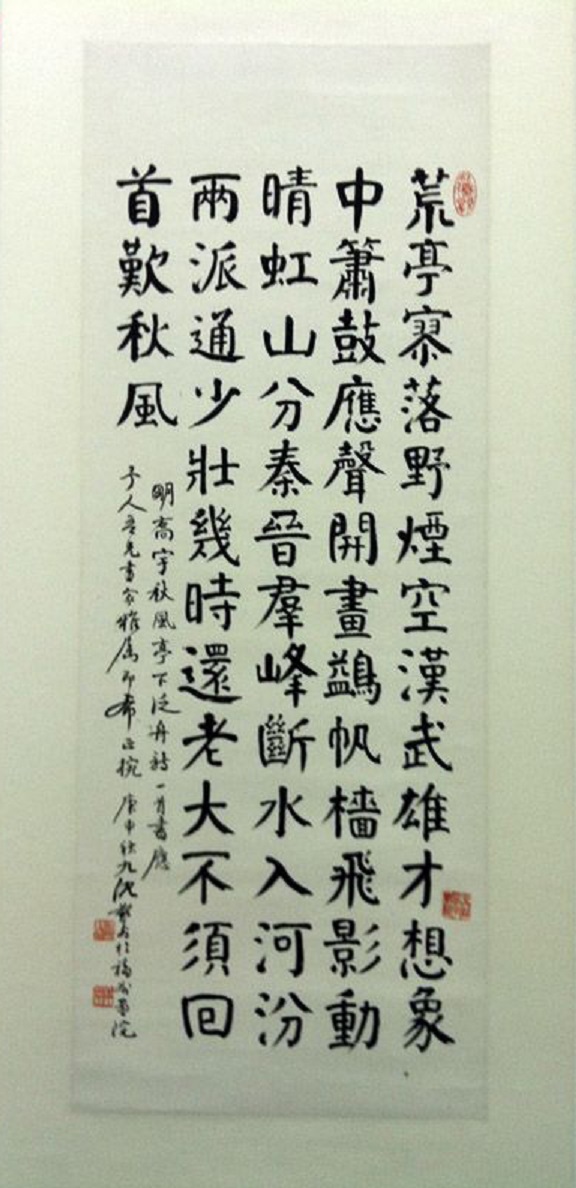 荒亭寥落野煙空漢武雄才想象
中簫鼓應聲開畫鷁帆檣飛影動
晴虹山分秦晉羣峰斷水入河汾
兩派通少壯幾時還老大不須回
首歎秋風
明高宇秋風亭下泛舟詩一首書應
子人吾兄書家雅屬即希正捥 庚申